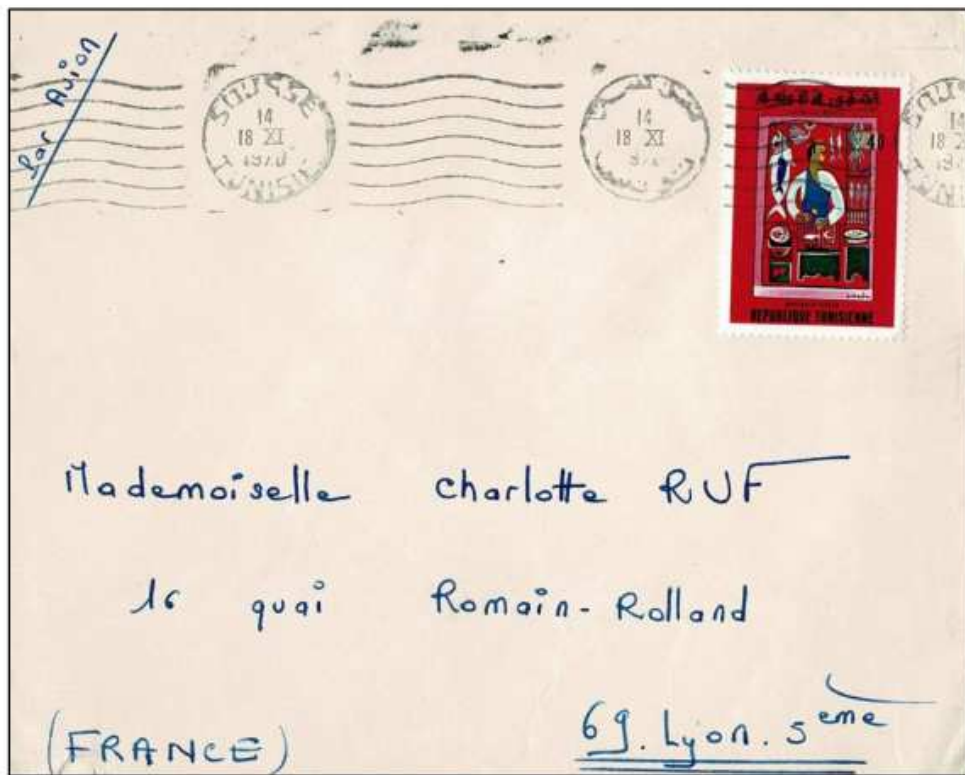 Par Avion
SOUSSE
14
18 XI
1970
TUNISIE
14
18 XI
40
REPUBLIQUE TUNISIENNE
Mademoiselle Charlotte RUF
16 quai Romain-Rolland
69. Lyon. 5eme
(FRANCE)